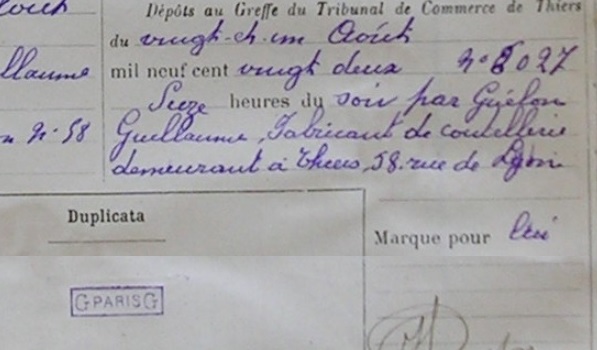 Dépôts au Greffe du Tribunal de Commerce de Thiers
du vingt-et-un Août
llaume mil neuf cent vingt deux N° 5027
Seize heures du soir par Guélon
N° 58 Guillaume, Fabricant de coutellerie
demeurant à Thiers, 58 rue de Lyon
Duplicata
Marque pour lui
G PARIS G